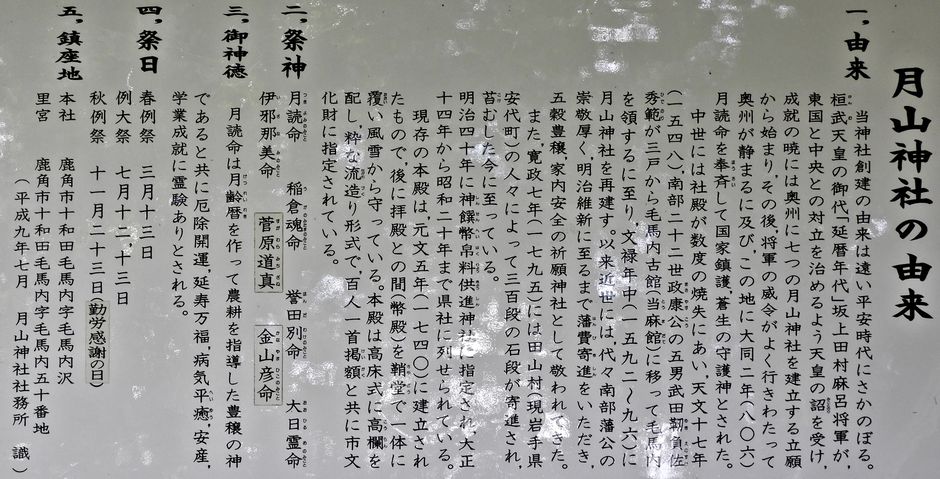 月山神社の由来
一、由来
当神社創建の由来は遠い平安時代にさかのぼる。
桓武天皇の御代「延暦年代」坂上田村麻呂将軍が、
東国と中央との対立を治めるよう天皇の詔を受け、
成就の暁には奥州に七つの月山神社を建立する立願
から始まり、その後、将軍の威令がよく行きわたって
奥州が静まるに及び、この地に大同二年（八〇六）
月読命を奉斉して国家鎮護、蒼生の守護神とされた。
中世には社殿が数度の焼失にあい、天文十七年
（一五四八）、南部二十二世政康公の五男武田靭負佐
秀範が三戸から毛馬内古館（当麻館）に移って毛馬内
を領するに至り、文禄年中（一五九二～九六）に
月山神社を再建す。以来近世には、代々南部藩公の
崇敬厚く、明治維新に至るまで藩費寄進をいただき、
五穀豊穣、家内安全の祈願神社として敬われてきた。
また、寛政七年（一七九五）には田山村（現岩手県
安代町）の人々によって三百段の石段が寄進され、
苔むした今に至っている。
明治四十年に神饌幣帛料供進神社に指定され、大正
十四年から昭和二十年まで県社に列せられていた。
現存の本殿は、元文五年（一七四〇）に建立され
たもので、後に拝殿との間（幣殿）を鞘堂で一体に
覆い風雪から守っている。本殿は高床式に高欄を
配し、粋な流造り形式で、百人一首掲額と共に市文
化財に指定されている。
二、祭神
月読命 稲倉魂命 誉田別命 大日霊命
伊邪那美命 菅原道真 金山彦命
三、御神徳
月読命は月齢暦を作って農耕を指導した豊穣の神
であると共に厄除開運、延寿万福、病気平癒、安産、
学業成就に霊験ありとされる。
四、祭日
春例祭 三月十三日
例大祭 七月十二、十三日
秋例祭 十一月二十三日（勤労感謝の日）
五、鎮座地
本社 鹿角市十和田毛馬内字毛馬内沢
里宮 鹿角市十和田毛馬内字毛馬内五十番地
（平成九年七月 月山神社社務所 識）